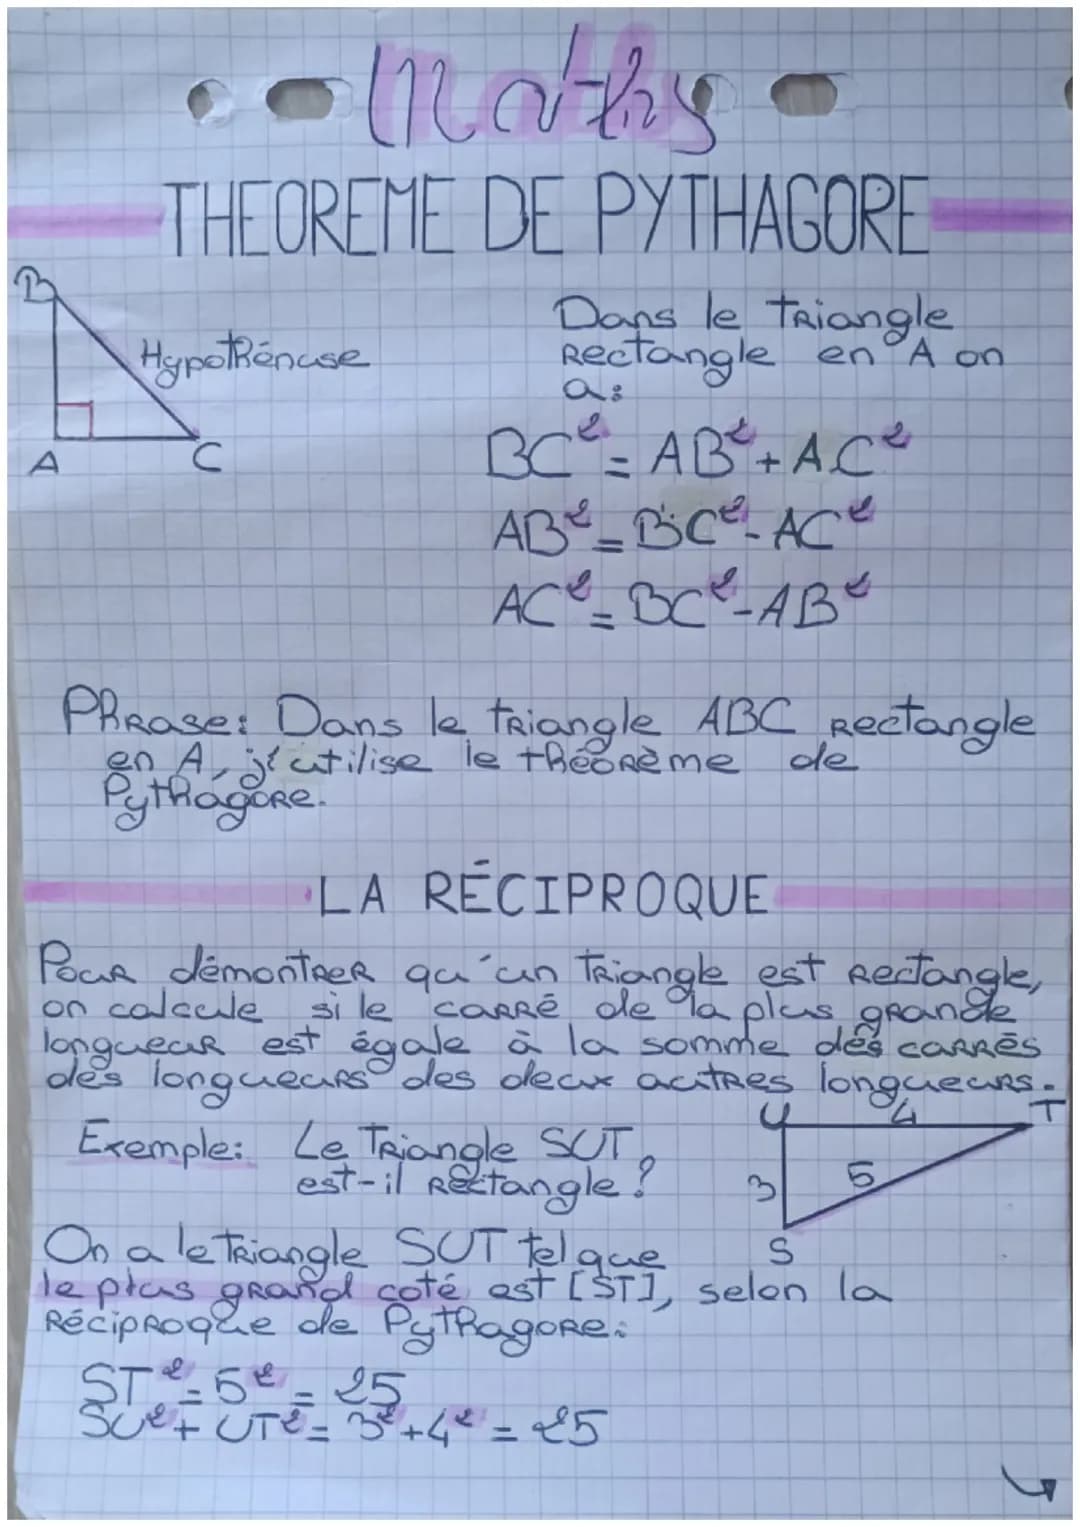 Maths
THEOREME DE PYTHAGORE
B
Hypothénuse
A
C
Dans le triangle
rectangle en A on
a:
BC² = AB² + AC²
AB² = BC² - AC²
AC² = BC² - AB²
Phrase: Dans le triangle ABC rectangle
en A, j'utilise le théorème de
Pythagore.
LA RÉCIPROQUE
Pour démontrer qu'un triangle est rectangle,
on calcule si le carré de la plus grande
longueur est égale à la somme des carrés
des longueurs des deux autres longueurs.
Exemple: Le Triangle SUT
est-il rectangle?
U 4 T
3 5
S
On a le triangle SUT tel que
le plus grand coté est [ST], selon la
réciproque de Pythagore:
ST² = 5² = 25
SU² + UT² = 3² + 4² = 25